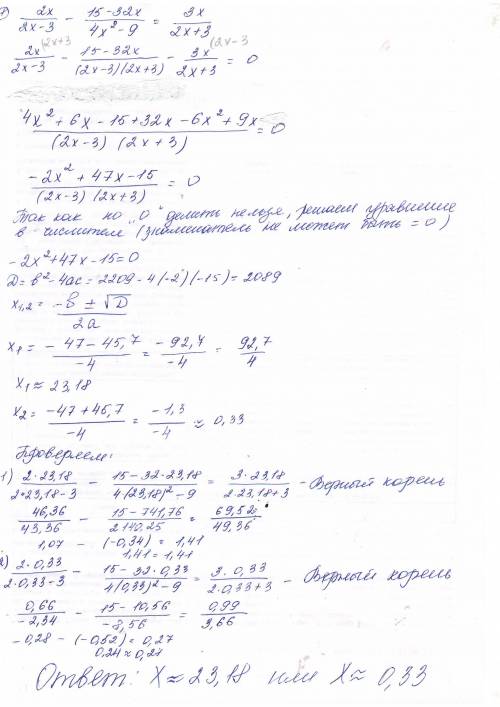 7) 2x/(2x-3) - (15-32x)/(4x²-9) = 3x/(2x+3)
2x(2x+3/(2x-3) - (15-32x)/((2x-3)(2x+3)) - 3x(2x-3/(2x+3) = 0
(4x²+6x-15+32x-6x²+9x)/((2x-3) (2x+3)) = 0
(-2x²+47x-15)/((2x-3) (2x+3)) = 0
Так как на „0“ делить нельзя, решаем уравнение
в числителе (знаменатель не может быть = 0)
-2x²+47x-15=0
D=b²-4ac=2209-4(-2)(-15)=2089
x1,2 = (-b ± √D)/2a
x1 = (-47-45,7)/-4 = -92,7/-4 = 92,7/4
x1 ≈ 23,18
x2 = (-47+45,7)/-4 = -1,3/-4 ≈ 0,33
Проверяем:
1) (2·23,18)/(2·23,18-3) - (15-32·23,18)/(4(23,18)²-9) = (3·23,18)/(2·23,18+3) - Верный корень
46,36/43,36 - (15-741,76)/2140.25 = 69,52/49,36
1,07 - (-0,34) = 1,41
1,41=1,41
2) (2·0,33)/(2·0,33-3) - (15-32·0,33)/(4(0,33)²-9) = (3·0,33)/(2·0,33+3) - Верный корень
0,66/-2,34 - (15-10,56)/-8,56 = 0,99/3,66
-0,28 - (-0,52) = 0,27
0,24≈0,27
Ответ: X≈23,18 или X≈0,33